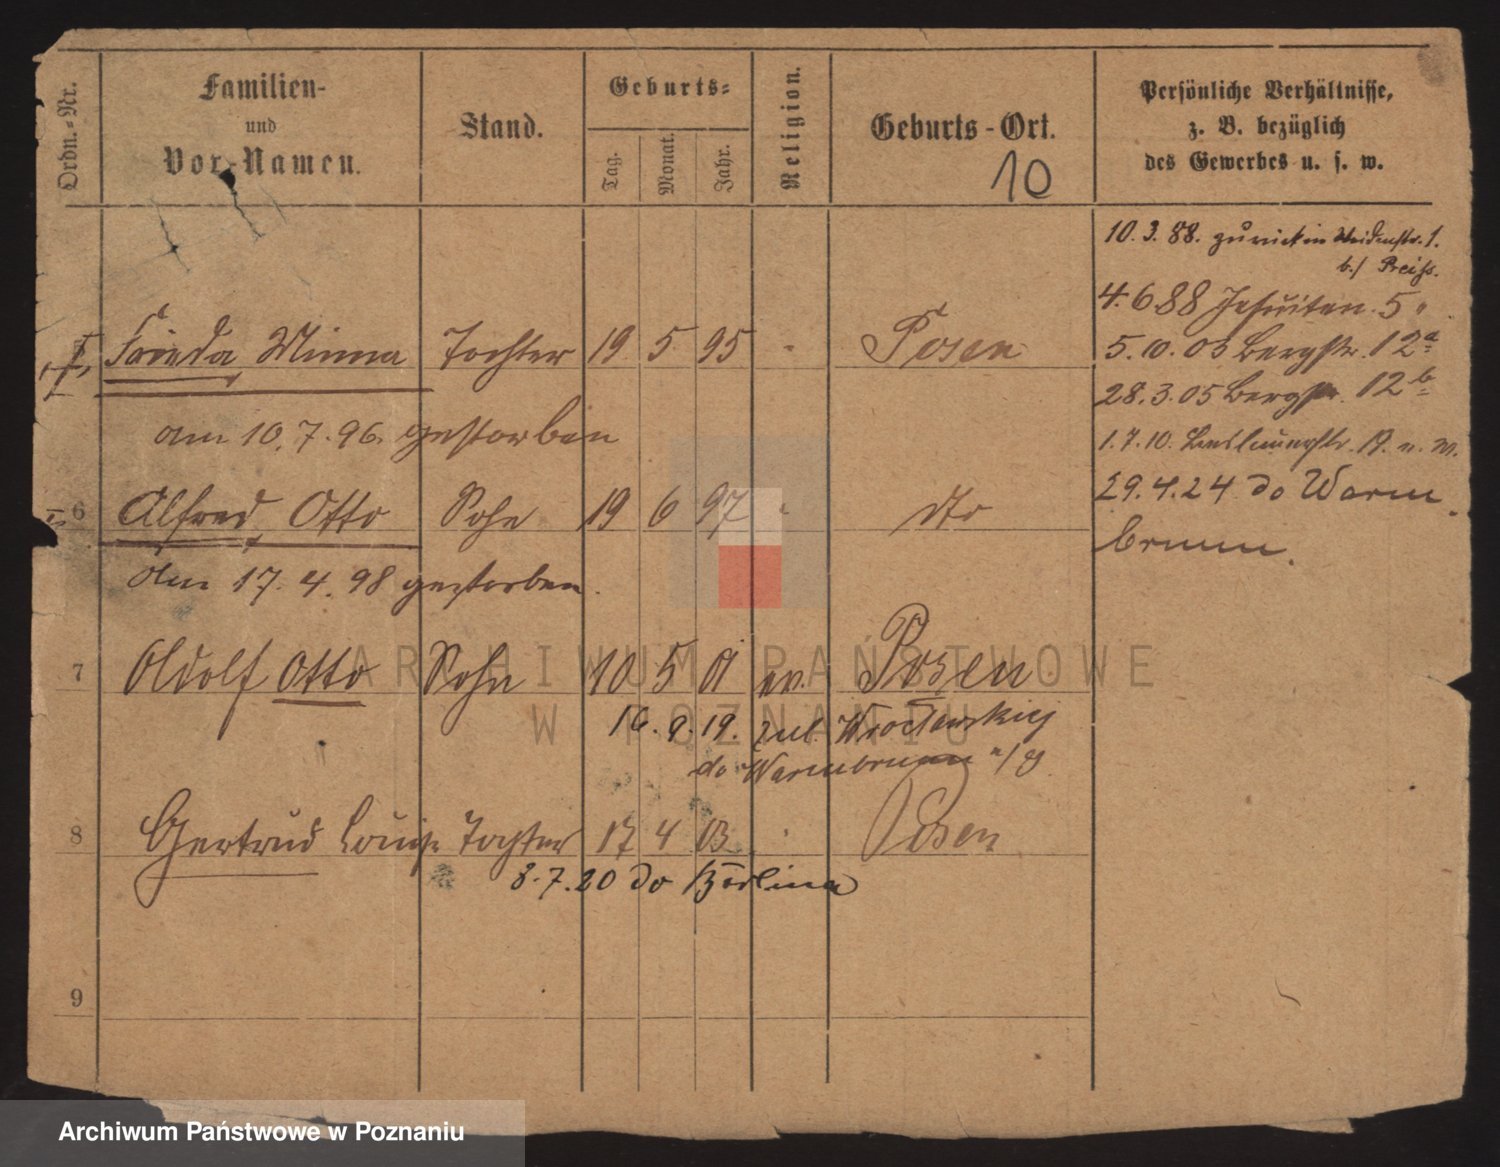 Ordn.-Nr.
Familien-
und
Vor-Namen.
Stand.
Geburts-
Tag.
Monat.
Jahr.
Religion.
Geburts-Ort.
10
Persönliche Verhältnisse,
z. B. bezüglich
des Gewerbes u. s. w.
10. 3. 88. zurück in Weidenstr. 1.
b./ Preiss.
4. 6 88 Jesuiten. 5 "
5. 10. 03 Bergstr. 12a
28. 3. 05 Bergstr. 12b
1. 7. 10.
29. 4. 24 do Warm
brunn.
5 Frieda Minna Tochter 19 5 95 Posen
am 10. 7. 96. gestorben
6 Alfred Otto Sohn 19 6 97 " dto
Am 17. 4. 98 gestorben.
7 Adolf Otto Sohn 10 5 01 ev. Posen
16. 9. 19. zul. Wrocławskiej
do Warmbrunn
8 Gertrud Louise Tochter 17 4 03 " Posen
3. 7. 20 do Berlina
9
ARCHIWUM PAŃSTWOWE
W POZNANIU
Archiwum Państwowe w Poznaniu